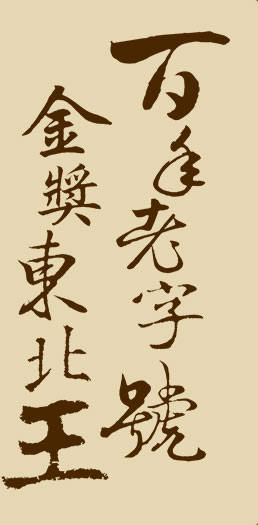 百年老字號
金獎東北王